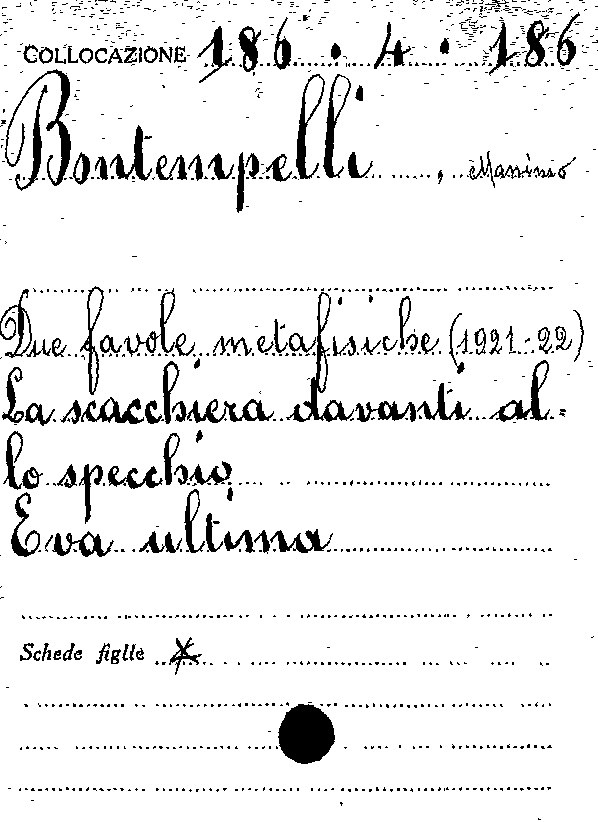 COLLOCAZIONE 186 . 4 . 186
Bontempelli , Massimo
Due favole metafisiche (1921-22)
La scacchiera davanti al-
lo specchio
Eva ultima
Schede figlie